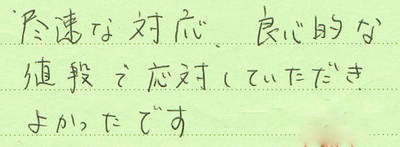 迅速な対応、良心的な
値段で応対していただき
よかったです